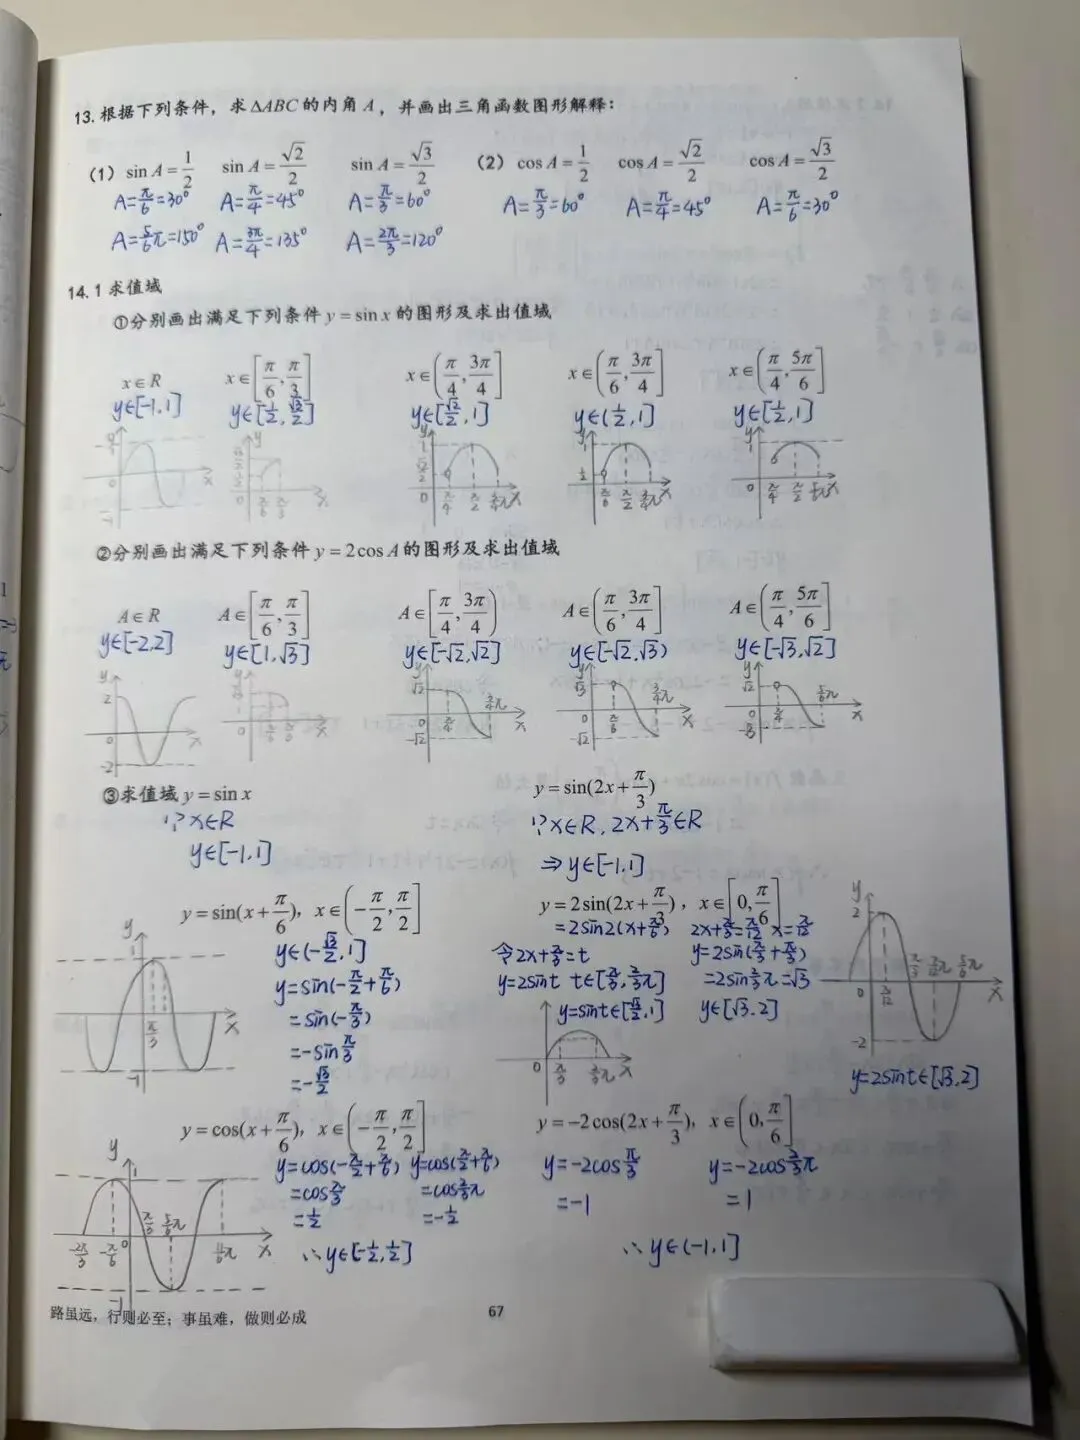 13. 根据下列条件，求ΔABC的内角A，并画出三角函数图形解释：
(1) sin A = 1/2  sin A = √2/2  sin A = √3/2  (2) cos A = 1/2  cos A = √2/2  cos A = √3/2
A=π/6=30°  A=π/4=45°  A=π/3=60°  A=π/3=60°  A=π/4=45°  A=π/6=30°
A=5/6π=150°  A=3π/4=135°  A=2π/3=120°
14.1 求值域
①分别画出满足下列条件 y = sin x 的图形及求出值域
x∈R  x∈[π/6, π/3]  x∈(π/4, 3π/4]  x∈(π/6, 3π/4]  x∈(π/4, 5π/6]
y∈[-1,1]  y∈[1/2, √3/2]  y∈[√2/2, 1]  y∈(1/2, 1]  y∈[1/2, 1]
②分别画出满足下列条件 y = 2cos A 的图形及求出值域
A∈R  A∈[π/6, π/3]  A∈[π/4, 3π/4)  A∈(π/6, 3π/4]  A∈(π/4, 5π/6]
y∈[-2,2]  y∈[1,√3]  y∈[-√2,√2]  y∈[-√2,√3)  y∈[-√3,√2]
③求值域 y = sin x  y = sin(2x+π/3)
∵x∈R  ∵x∈R, 2x+π/3∈R
y∈[-1,1]  ⇒y∈[-1,1]
y = sin(x+π/6), x∈(-π/2, π/2]  y = 2sin(2x+π/3), x∈[0, π/6]
y∈(-√3/2, 1]  =2sin2(x+π/6)  2x+π/3=π/2  x=π/12
y=sin(-π/2+π/6)  令2x+π/3=t  y=2sin(π/3+π/3)
=sin(-π/3)  y=2sint  t∈[π/3, 2/3π]  =2sin2/3π=√3
=-sinπ/3  y=sint∈[√3/2, 1]  y∈[√3,2]
=-√3/2  y=2sint∈[√3,2]
y = cos(x+π/6), x∈(-π/2, π/2]  y = -2cos(2x+π/3), x∈(0, π/6]
y=cos(-π/2+π/6)  y=cos(π/2+π/6)  y=-2cosπ/3  y=-2cos2/3π
=cosπ/3  =cos2/3π  =-1  =1
=1/2  =-1/2
∴y∈[-1/2, 1/2]  ∴y∈(-1,1]
路虽远，行则必至；事虽难，做则必成
67